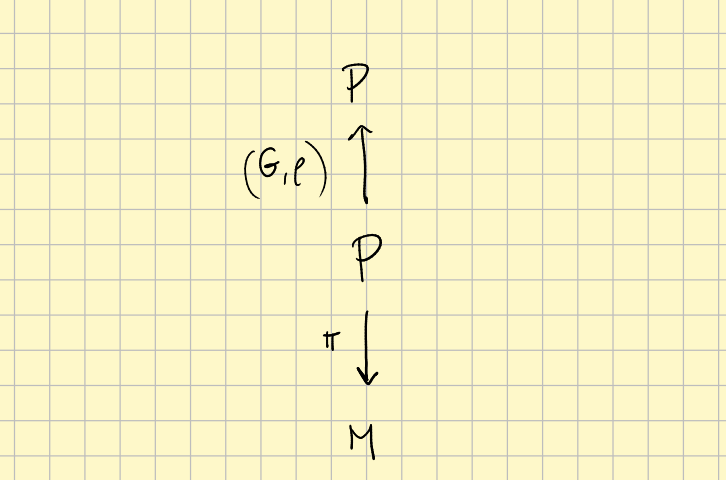 P
(G,ρ)
P
π
M